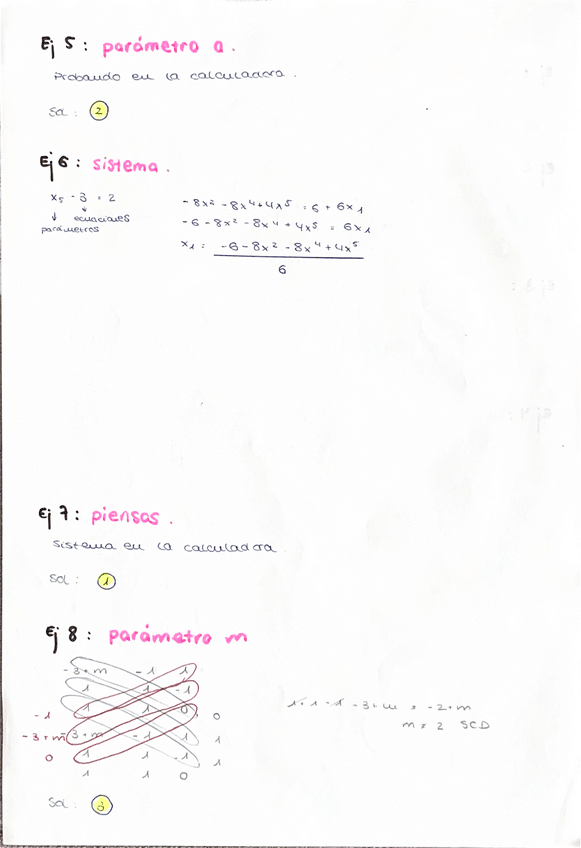 Ej 5 : parámetro a .
Probando en la calculadora .
Sol : 2
Ej 6 : sistema .
x5 - 3 = 2
↓ ↓ ecuaciones
parámetros
- 8x² - 8x⁴ + 4x⁵ = 6 + 6x1
- 6 - 8x² - 8x⁴ + 4x⁵ = 6x1
x1 = -6 - 8x² - 8x⁴ + 4x⁵
6
Ej 7 : piensas .
Sistema en la calculadora .
Sol : 1
Ej 8 : parámetro m
-3+m -1 1
1 1 -1
-1 1 1 0 0
-3+m -3+m -1 1 1
0 1 1 -1 1
1 1 0
1 + 1 - 1 - 3 + m = -2 + m
m = 2 SCD
Sol :